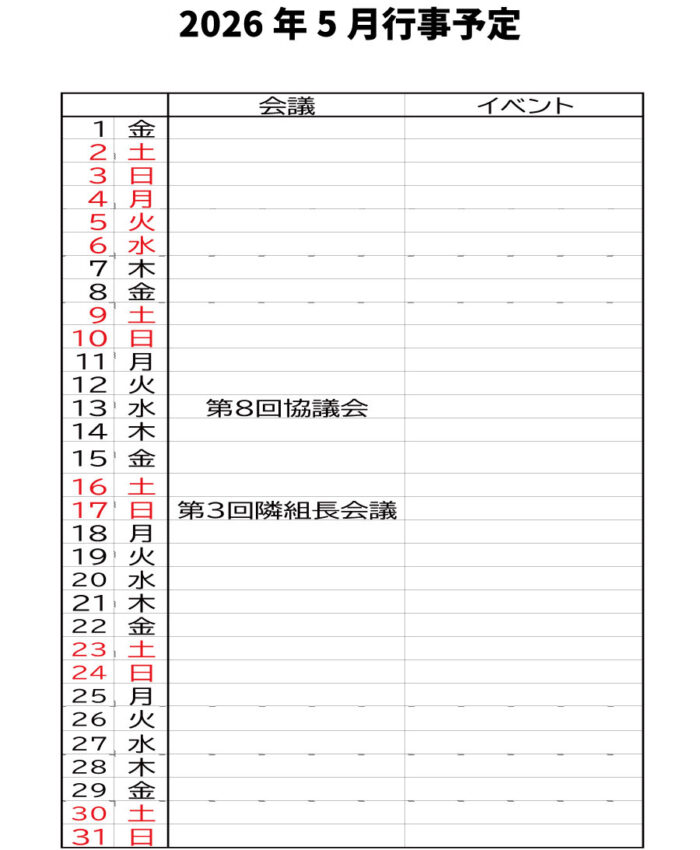 2026 年 5 月行事予定
会議 イベント
1 金
2 土
3 日
4 月
5 火
6 水
7 木
8 金
9 土
10 日
11 月
12 火
13 水 第8回協議会
14 木
15 金
16 土
17 日 第3回隣組長会議
18 月
19 火
20 水
21 木
22 金
23 土
24 日
25 月
26 火
27 水
28 木
29 金
30 土
31 日